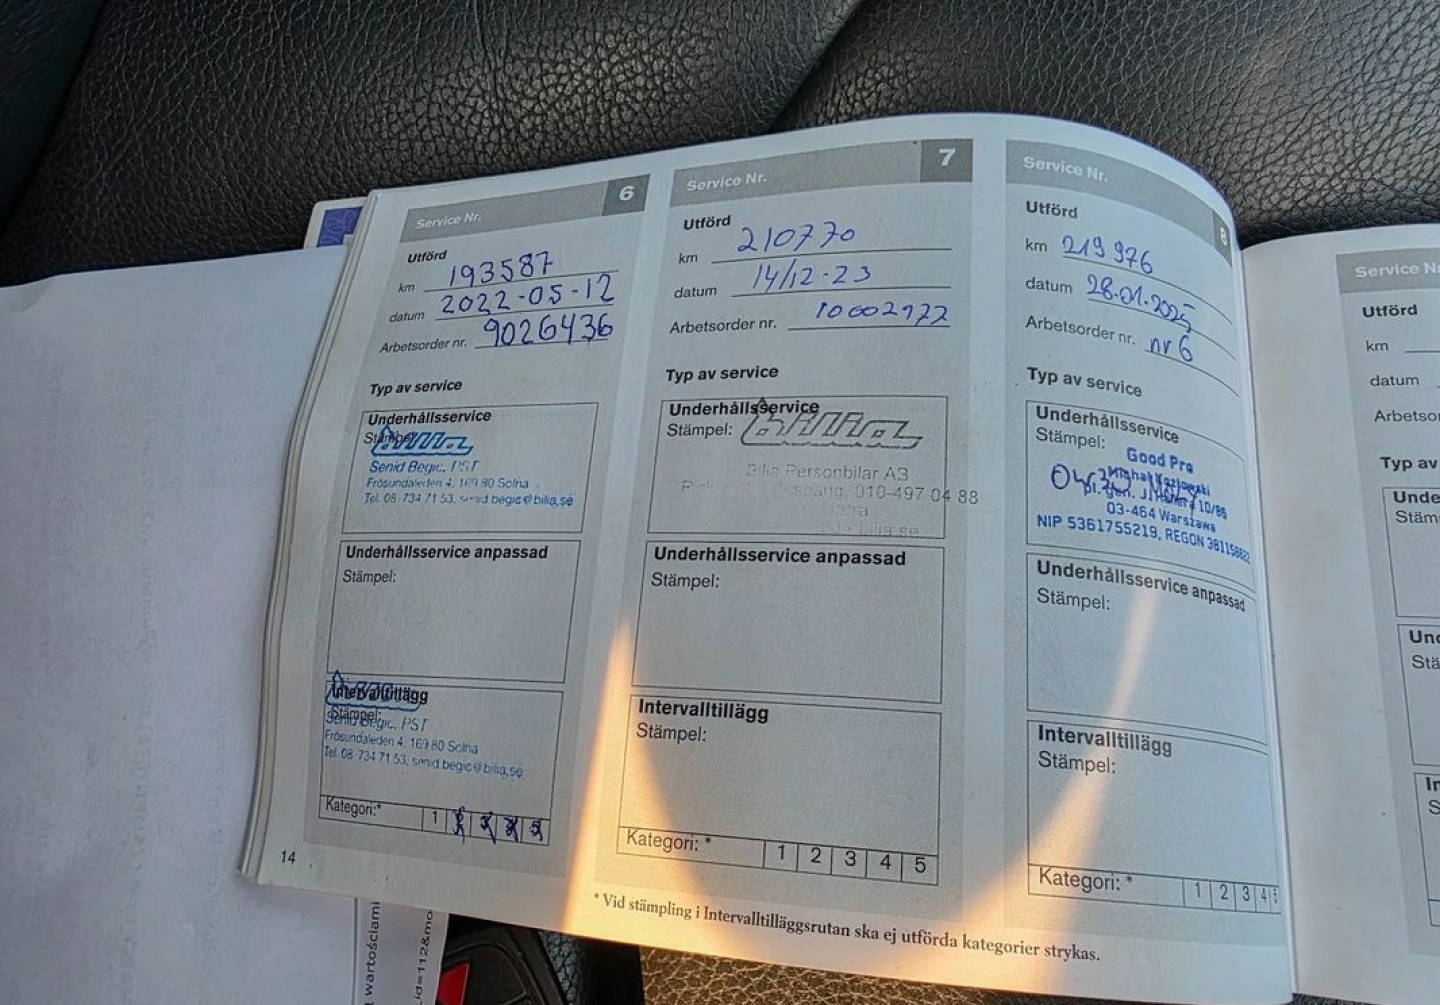 Service Nr. 6
Utförd
km 193587
datum 2022-05-12
Arbetsorder nr. 9026436
Typ av service
Underhållsservice
Stämpel:
bilia
Senid Begic, PST
Frösundaleden 4, 169 80 Solna
Tel. 08-734 71 53, senid.begic@bilia.se
Underhållsservice anpassad
Stämpel:
Intervalltillägg
Stämpel:
Senid Begic, PST
Frösundaleden 4, 169 80 Solna
Tel. 08-734 71 53, senid.begic@bilia.se
Kategori:* 1 2 3 4 5
14
Service Nr. 7
Utförd
km 210770
datum 14/12-23
Arbetsorder nr. 10002972
Typ av service
Underhållsservice
Stämpel: bilia
Bilia Personbilar AB
010-497 04 88
bilia.se
Underhållsservice anpassad
Stämpel:
Intervalltillägg
Stämpel:
Kategori: * 1 2 3 4 5
Service Nr. 8
Utförd
km 219976
datum 28.01.2025
Arbetsorder nr. nr 6
Typ av service
Underhållsservice
Stämpel:
Good Pro
Michał Kozłowski
pl. gen. J. Hallera 10/85
03-464 Warszawa
NIP 5361755219, REGON
Underhållsservice anpassad
Stämpel:
Intervalltillägg
Stämpel:
Kategori: * 1 2 3 4 5
* Vid stämpling i Intervalltilläggsrutan ska ej utförda kategorier strykas.
Service Nr
Utförd
km
datum
Arbetso
Typ av
Unde
Stäm
Und
Stä
In
S
wartościami
id=112&mo